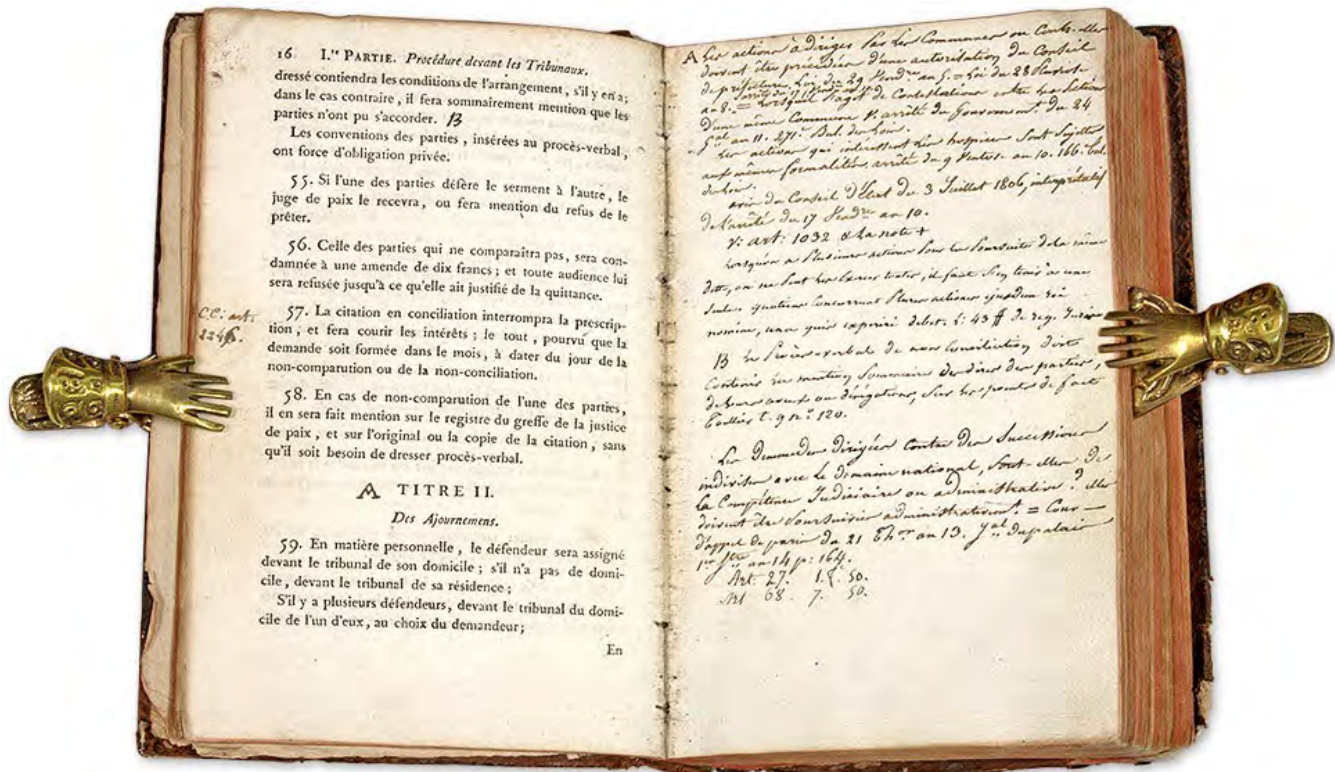 16 I.re PARTIE. Procédure devant les Tribunaux.
dressé contiendra les conditions de l'arrangement, s'il y en a;
dans le cas contraire, il fera sommairement mention que les
parties n'ont pu s'accorder. B
Les conventions des parties, insérées au procès-verbal,
ont force d'obligation privée.
55. Si l'une des parties défère le serment à l'autre, le
juge de paix le recevra, ou fera mention du refus de le
prêter.
56. Celle des parties qui ne comparaîtra pas, sera con-
damnée à une amende de dix francs; et toute audience lui
sera refusée jusqu'à ce qu'elle ait justifié de la quittance.
C.C: art:
2246.
57. La citation en conciliation interrompra la prescrip-
tion, et fera courir les intérêts; le tout, pourvu que la
demande soit formée dans le mois, à dater du jour de la
non-comparution ou de la non-conciliation.
58. En cas de non-comparution de l'une des parties,
il en sera fait mention sur le registre du greffe de la justice
de paix, et sur l'original ou la copie de la citation, sans
qu'il soit besoin de dresser procès-verbal.
A TITRE II.
Des Ajournemens.
59. En matière personnelle, le défendeur sera assigné
devant le tribunal de son domicile; s'il n'a pas de domi-
cile, devant le tribunal de sa résidence;
S'il y a plusieurs défendeurs, devant le tribunal du domi-
cile de l'un d'eux, au choix du demandeur;
En
A Les actions à diriger par les Communes ou Contr-elles
doivent être précédées d'une autorisation du Conseil
de préfecture. Loi du 29 Vendre an 5. = Loi du 28 Pluviose
an 8. = Lorsqu'il s'agit de Contestations entre les Sections
d'une même Commune V. arrêté du Gouvernement du 24
an 11. 271e Bul. des Lois.
Les actions qui intéressent les hospices sont sujettes
aux mêmes formalités. arrêté du 9 Ventose an 10. 166. bul.
des Lois.
avis du Conseil d'Etat du 3 Juillet 1806, interprétatif
de l'arrêté du 17 Vendre an 10.
V: art: 1032 & la note +
Lorsqu'on a Plusieurs actions Pour la Poursuite de la même
dette, on ne Peut les Exercer toutes, il faut S'en tenir à une
Seule. quotiens Concurrunt Plures actiones ejusdem rei
nomine, una quis experiri debet. l: 43 ff de reg. Juris
B Le Procès-verbal de non Conciliation doit
Contenir la mention Sommaire des dires des parties,
de leurs aveux ou dénégations, Sur les points de fait
Toullier t. 9 n.o 120.
Les Demandes dirigées Contre des Successions
indivises avec le Domaine national, Sont-elles de
la Compétence Judiciaire ou administrative? elles
doivent être Poursuivies administrativement. = Cour
d'appel de paris du 21 Thor an 13. Jal du palais
1er an 14 p: 164.
Art. 27. 50.
Art 68. 7. 50.